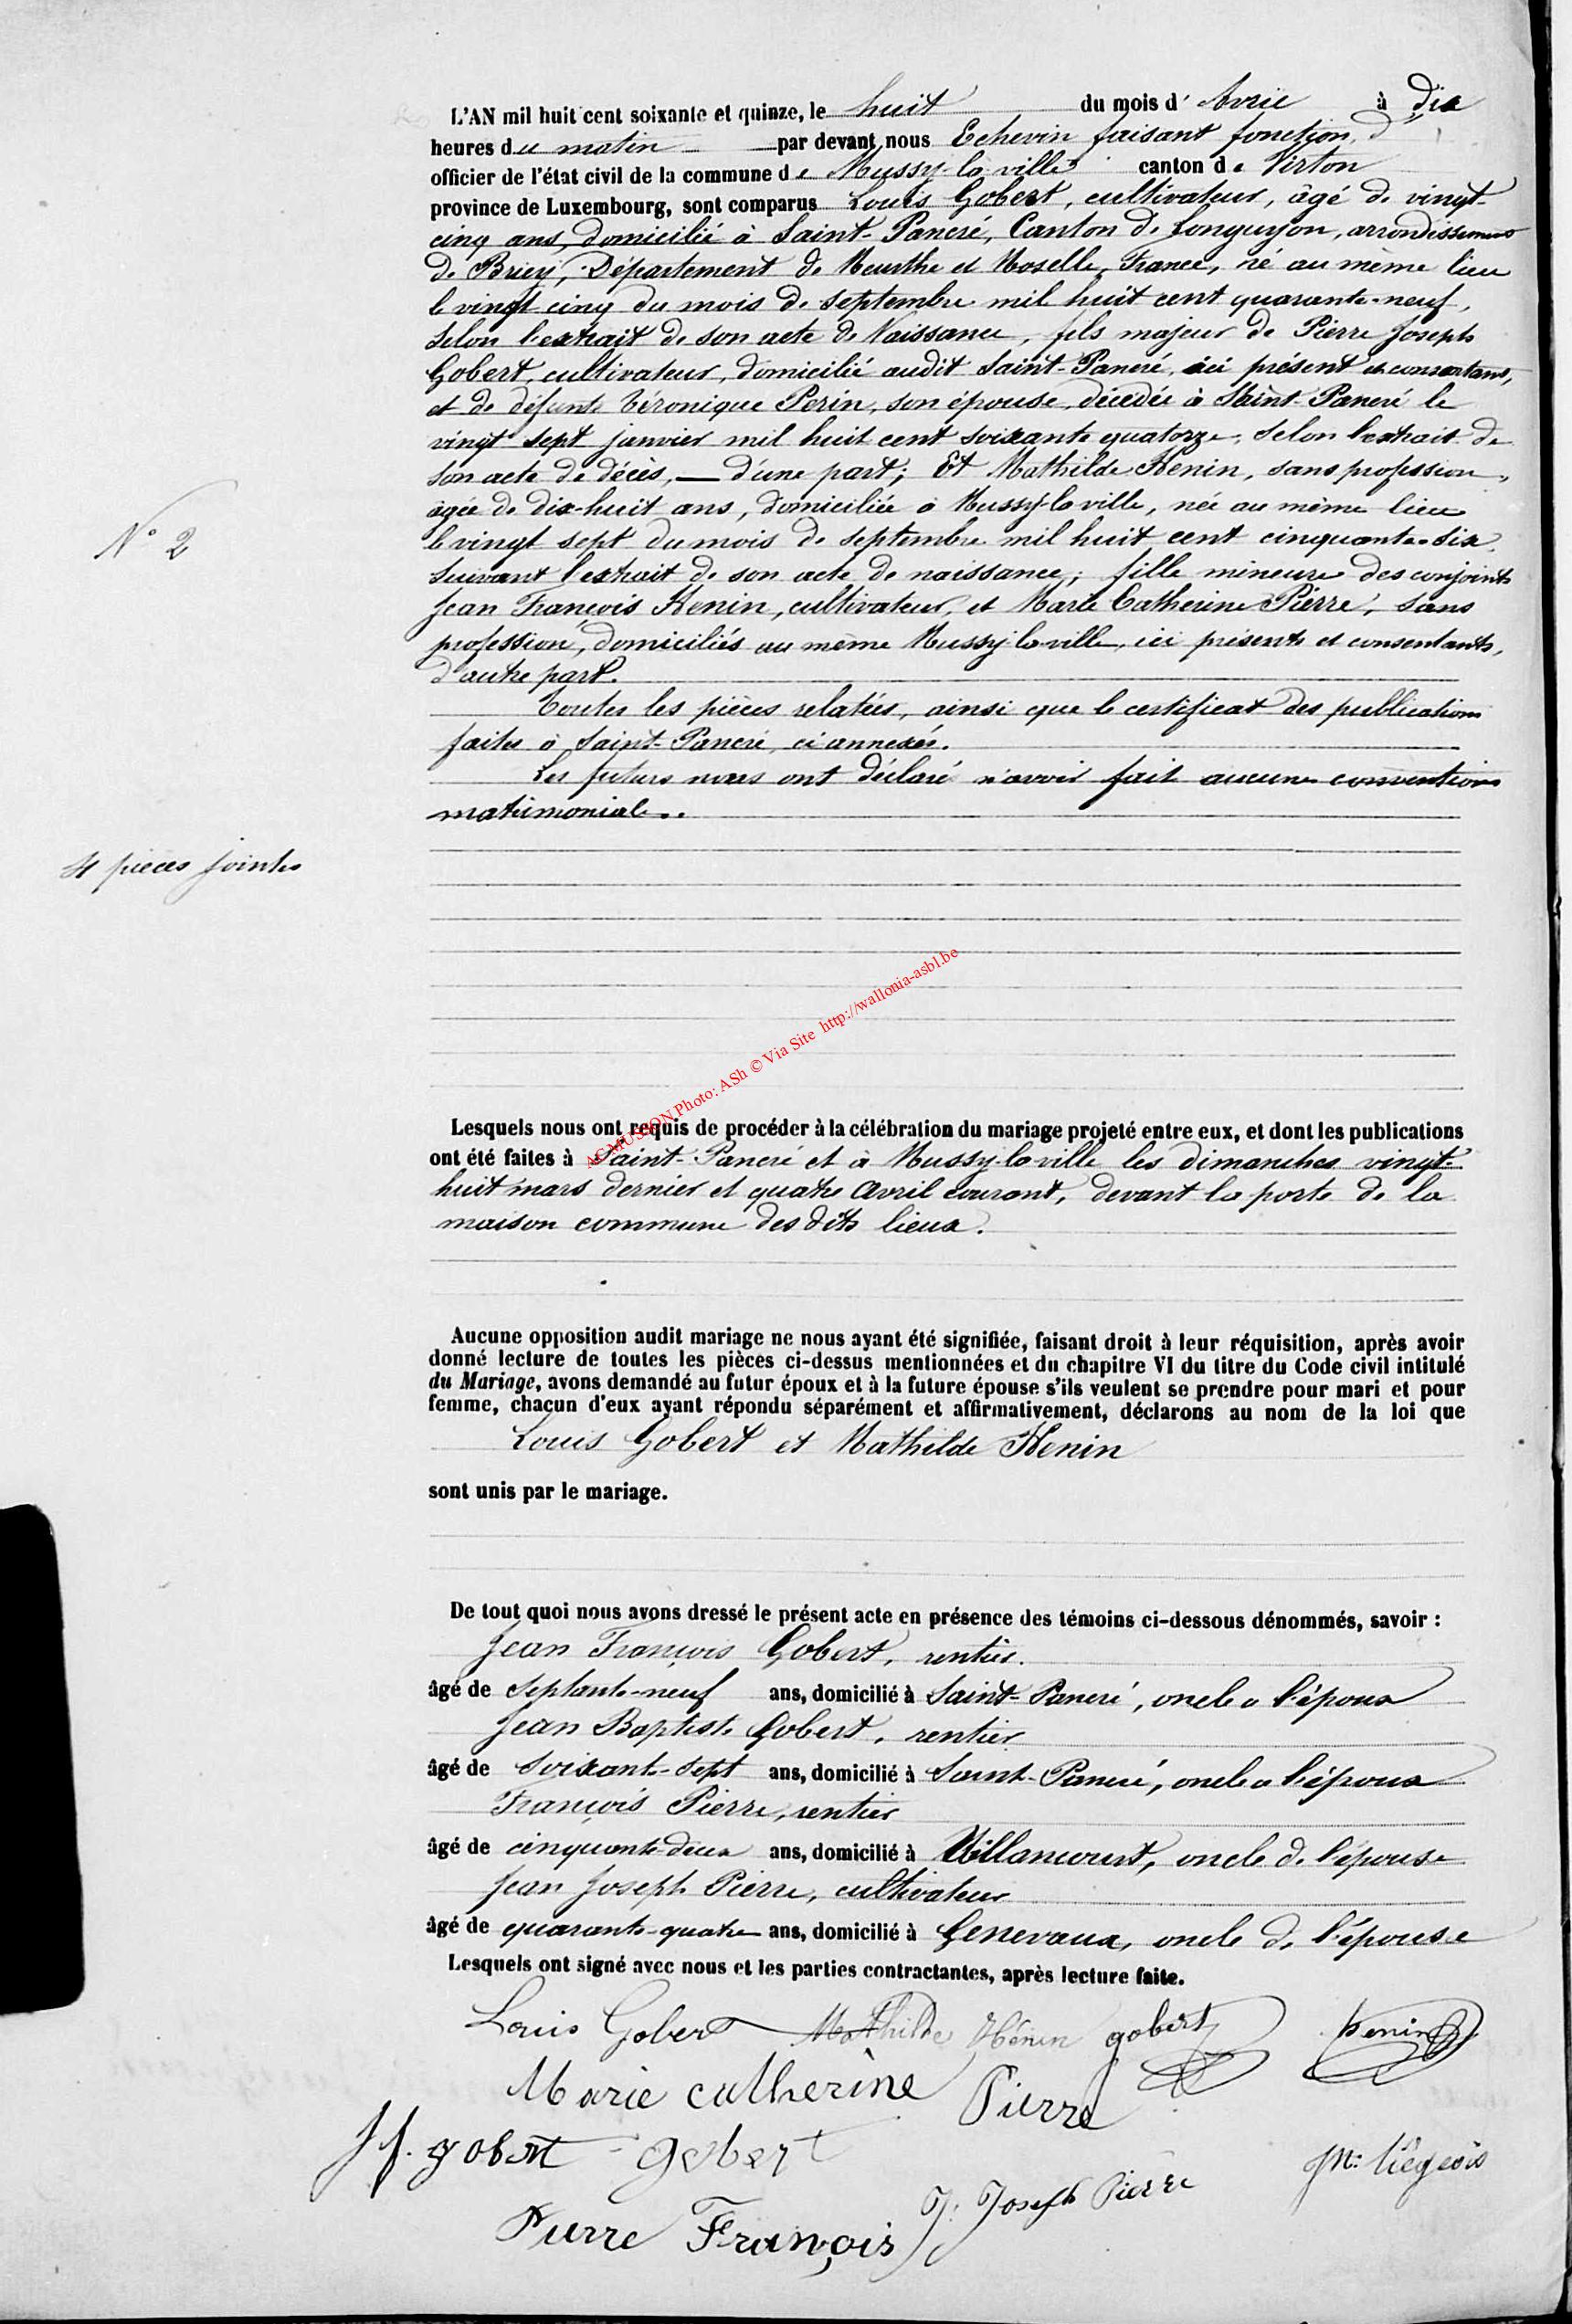 L'AN mil huit cent soixante et quinze, le huit du mois d' Avril à dix
heures du matin par devant nous Echevin faisant fonction d'
officier de l'état civil de la commune de Mussy-la-ville canton de Virton
province de Luxembourg, sont comparus Louis Gobert, cultivateur, âgé de vingt-
cinq ans, domicilié à Saint-Pancré, Canton de Longuyon, arrondissement
de Briey, Département de Meurthe et Moselle, France, né au même lieu
le vingt cinq du mois de septembre mil huit cent quarante-neuf,
selon l'extrait de son acte de Naissance, fils majeur de Pierre Joseph
Gobert, cultivateur, domicilié audit Saint-Pancré, ici présent et consentant,
et de défunte Véronique Perin, son épouse, décédée à Saint-Pancré le
vingt sept janvier mil huit cent soixante quatorze, selon l'extrait de
son acte de décès, — d'une part; Et Mathilde Henin, sans profession,
âgée de dix-huit ans, domiciliée à Mussy-la ville, née au même lieu
N° 2
le vingt sept du mois de septembre mil huit cent cinquante-six,
suivant l'extrait de son acte de naissance; fille mineure des conjoints
Jean François Henin, cultivateur, et Marie Catherine Pierre, sans
profession, domiciliés au même Mussy-la-ville, ici présents et consentants,
d'autre part.
Toutes les pièces relatées, ainsi que le certificat des publications
faites à Saint-Pancré, ci annexés.
Les futurs nous ont déclaré n'avoir fait aucune convention
matrimoniale.
4 pièces jointes
AC MUSSON Photo: ASh © Via Site http://wallonia-asbl.be
Lesquels nous ont requis de procéder à la célébration du mariage projeté entre eux, et dont les publications
ont été faites à Saint-Pancré et à Mussy-la-ville les dimanches vingt-
huit mars dernier et quatre Avril courant, devant la porte de la
maison commune des dits lieux.
Aucune opposition audit mariage ne nous ayant été signifiée, faisant droit à leur réquisition, après avoir
donné lecture de toutes les pièces ci-dessus mentionnées et du chapitre VI du titre du Code civil intitulé
du Mariage, avons demandé au futur époux et à la future épouse s'ils veulent se prendre pour mari et pour
femme, chacun d'eux ayant répondu séparément et affirmativement, déclarons au nom de la loi que
Louis Gobert et Mathilde Henin
sont unis par le mariage.
De tout quoi nous avons dressé le présent acte en présence des témoins ci-dessous dénommés, savoir :
Jean François Gobert, rentier.
âgé de septante-neuf ans, domicilié à Saint-Pancré, oncle a l'époux
Jean Baptiste Gobert, rentier
âgé de soixante-sept ans, domicilié à Saint-Pancré, oncle a l'époux
François Pierre, rentier
âgé de cinquante-deux ans, domicilié à Villancourt, oncle de l'épouse
Jean Joseph Pierre, cultivateur
âgé de quarante-quatre ans, domicilié à Genevaux, oncle de l'épouse
Lesquels ont signé avec nous et les parties contractantes, après lecture faite.
Louis Gobert Mathilde Hénin gobert henin
Marie catherine Pierre
J f. gobert gobert
Pierre François J: Joseph Pierre Liégeois